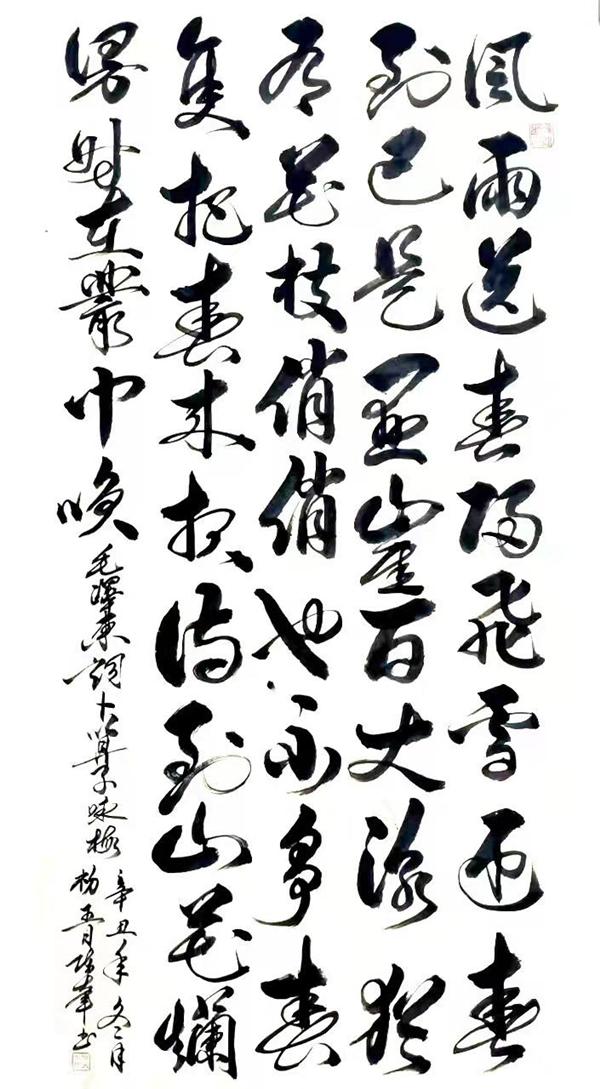 風雨送春歸飛雪迎春
到已是懸崖百丈冰猶
有花枝俏俏也不爭春
隻把春來報待到山花爛
漫她在叢中咲
毛澤東詞卜算子咏梅
辛丑年冬月
書